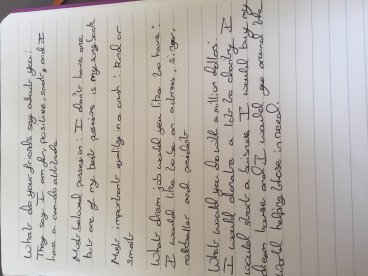 What do your friends say about you:
They say I am fun, positive, and I
have a can do attitude
Most beloved possesion: I don't have one
but one of my best possesions is my song book
Most important quality in a crush: Kind or
smart
What dream job would you like to have:
I would like to be an actress, singer,
netballer and
What would you do with a million dollars:
I would donate a lot to charity I
would start a business I would buy my
dream house and I would go around the
world helping those in need.